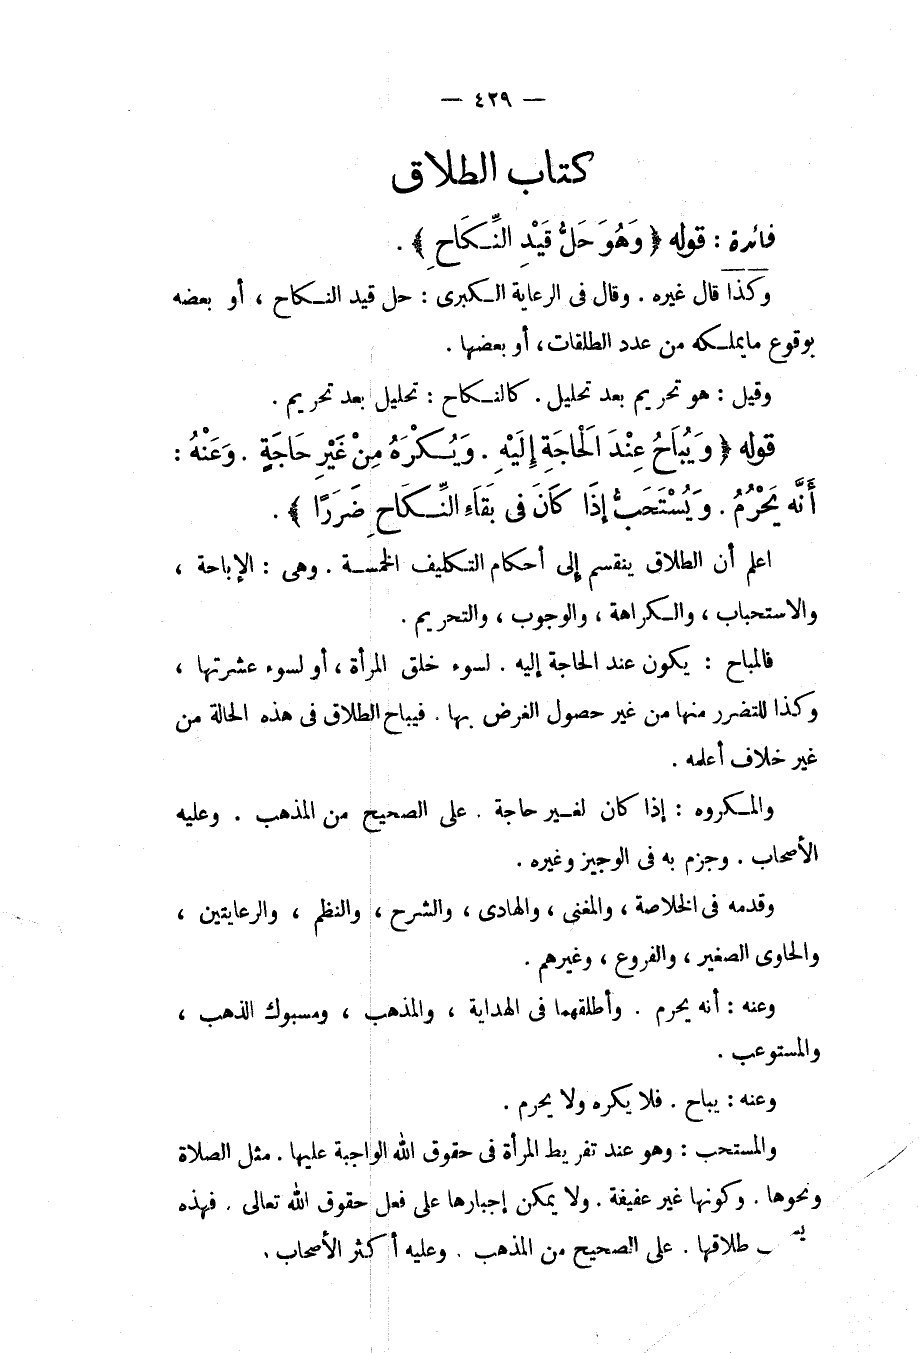 — ٤٢٩ —
كتاب الطلاق
فائدة : قوله ﴿ وَهُوَ حَلُّ قَيْدِ النِّكَاحِ ﴾ .
وكذا قال غيره . وقال فى الرعاية الكبرى : حل قيد النكاح ، أو بعضه
بوقوع مايملكه من عدد الطلقات، أو بعضها .
وقيل : هو تحريم بعد تحليل . كالنكاح : تحليل بعد تحريم .
قوله ﴿ وَيُبَاحُ عِنْدَ الْحَاجَةِ إِلَيْهِ . وَيُكْرَهُ مِنْ غَيْرِ حَاجَةٍ . وَعَنْهُ :
أَنَّه يَحْرُمُ . وَيُسْتَحَبُّ إِذَا كَانَ فى بَقَاءِ النِّكَاحِ ضَرَرًا ﴾ .
اعلم أن الطلاق ينقسم إلى أحكام التكليف الخمسة . وهى : الإباحة ،
والاستحباب ، والكراهة ، والوجوب ، والتحريم .
فالمباح : يكون عند الحاجة إليه . لسوء خلق المرأة ، أو لسوء عشرتها ،
وكذا للتضرر منها من غير حصول الغرض بها . فيباح الطلاق فى هذه الحالة من
غير خلاف أعلمه .
والمكروه : إذا كان لغير حاجة . على الصحيح من المذهب . وعليه
الأصحاب . وجزم به فى الوجيز وغيره .
وقدمه فى الخلاصة ، والمغنى ، والهادى ، والشرح ، والنظم ، والرعايتين ،
والحاوى الصغير ، والفروع ، وغيرهم .
وعنه : أنه يحرم . وأطلقهما فى الهداية ، والمذهب ، ومسبوك الذهب ،
والمستوعب .
وعنه : يباح . فلا يكره ولا يحرم .
والمستحب : وهو عند تفريط المرأة فى حقوق الله الواجبة عليها . مثل الصلاة
ونحوها . وكونها غير عفيفة . ولا يمكن إجبارها على فعل حقوق الله تعالى . فهذه
طلاقها . على الصحيح من المذهب . وعليه أكثر الأصحاب .